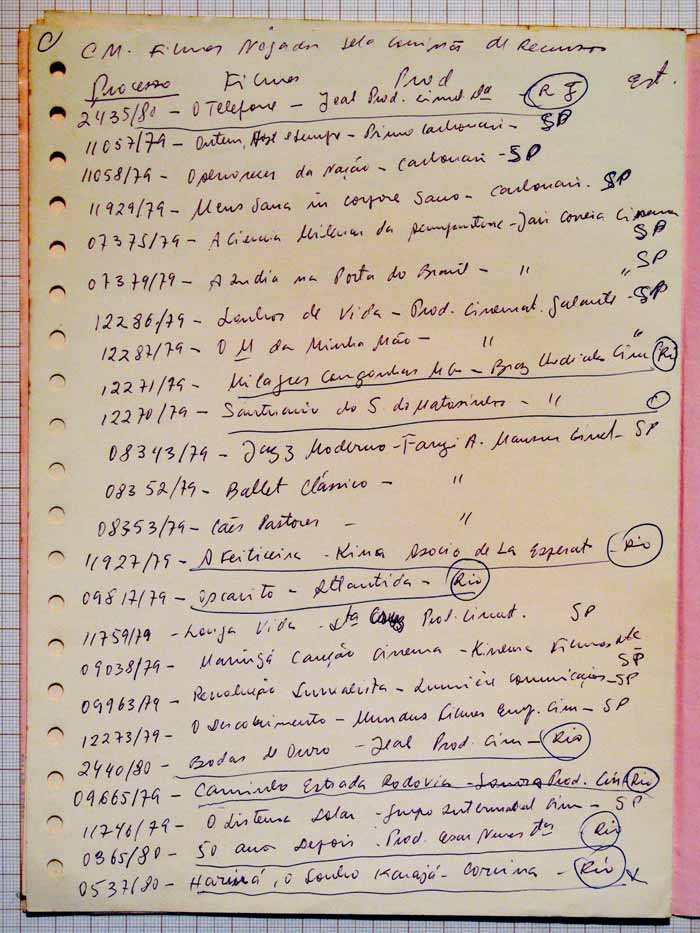 C.M. Filmes Negados pela Comissão de Recursos
Processo Filmes Prod Est.
2435/80 - O Telefone - Jeal Prod. Cimat. Lda - RJ
11057/79 - Ontem, Hoje e sempre - Primo Carbonari - SP
11058/79 - Defensores da Nação - Carbonari - SP
11929/79 - Mens Sana in corpore Sano - Carbonari. SP
07375/79 - A Ciencia Milenar da - Jair Correia Cinema SP
07379/79 - A India na Porta do Brasil - " " SP
12286/79 - Sonhos de Vida - Prod. Cinemat. Galante - SP
12287/79 - O M da Minha Mão - " "
12271/79 - Milagres Congonhas MG - Braz Chediak Cim Rio
12270/79 - Santuario do S. de Matosinhos - "
08343/79 - Jazz Moderno - A. Mansur Cimat - SP
08352/79 - Ballet Clássico - "
08353/79 - Cães Pastores - "
11927/79 - A Feiticeira - Kino de La - Rio
09817/79 - Oscarito - Atlantida - Rio
11759/79 - Longa Vida - Sta Cruz Prod. Cimat. SP
09038/79 - Maringá Canção Cinema - Kinema Filmes Lda SP
09963/79 - Revolução Surrealista - Lumiére Comunicações - SP
12273/79 - O Descobrimento - Mundus Filmes Cim - SP
2440/80 - Bodas de Ouro - Jeal Prod. Cim - Rio
09665/79 - Caminho Estrada Rodovia - Sonora Prod. Cim Rio
11746/79 - O Sistema Solar - Grupo Cim - SP
0365/80 - 50 anos Depois - Prod. Cesar Nunes Rio
0537/80 - Hariná, o Sonho Karajá - Corcina - Rio x